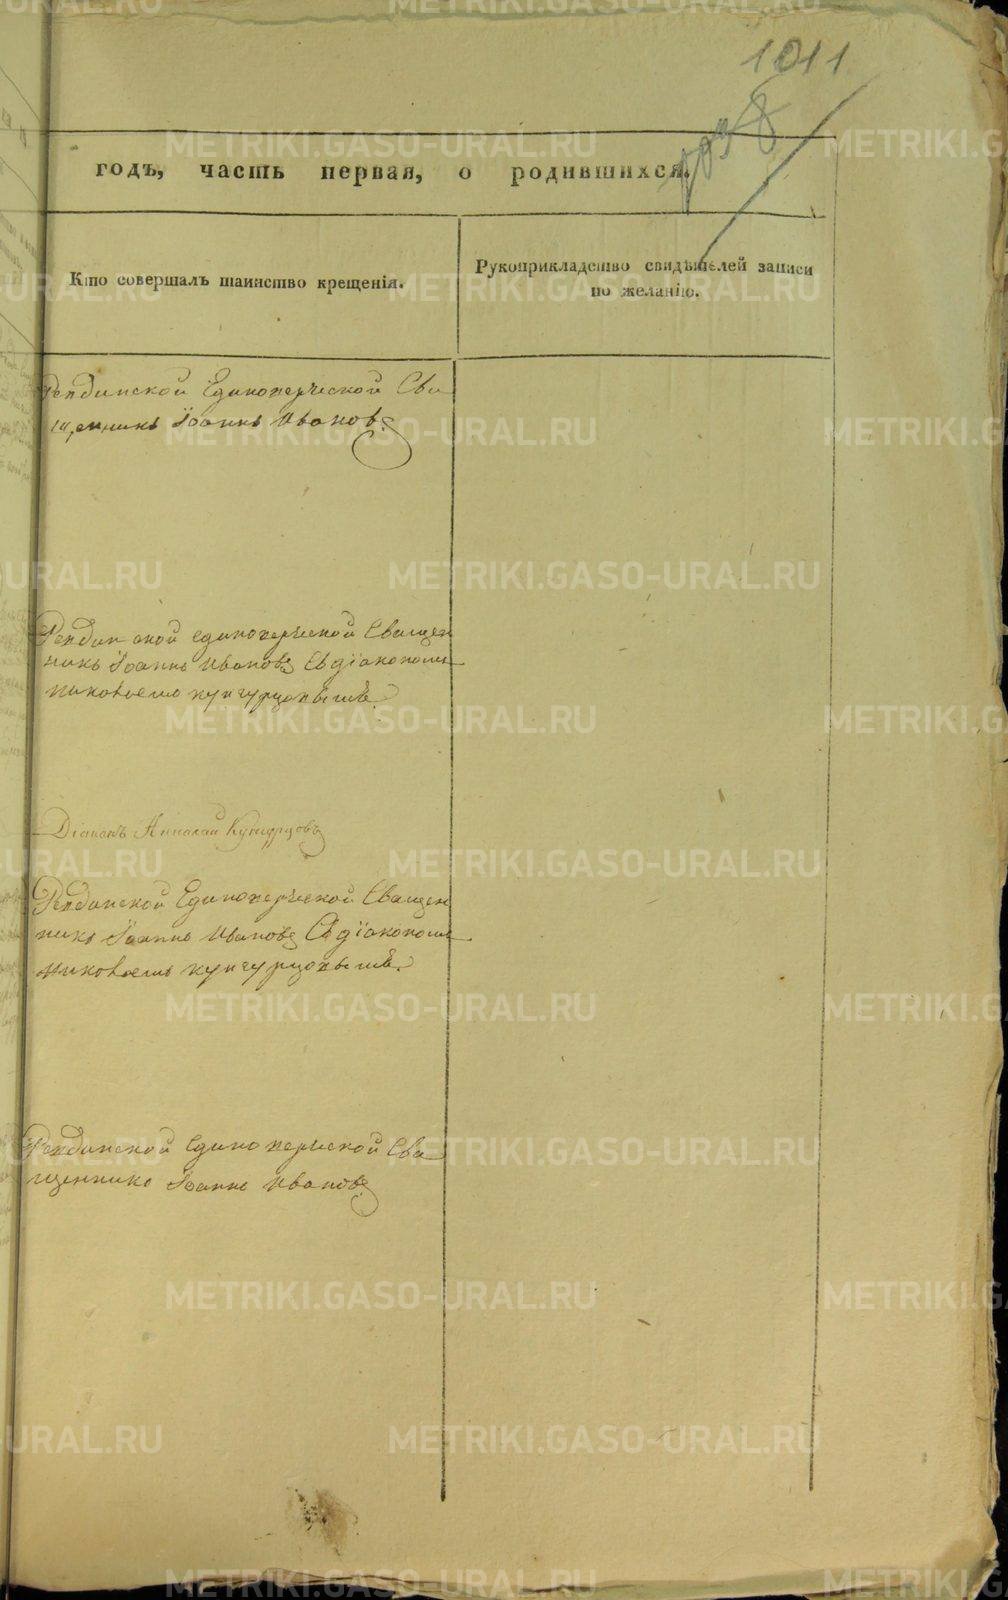 1011
годъ, часть первая, о родившихся.
Кто совершалъ таинство крещенія.
Рукоприкладство свидѣтелей записи
по желанію.
Ревдинской Единоверческой Свя
щенникъ Іоаннъ Ивановъ
Ревдинской единоверческой Священ
никъ Іоаннъ Ивановъ Съ діакономъ
николаемъ кунгурцовымъ.
Діаконъ Николай Кунгурцовъ
Ревдинской Единоверческой Священ
никъ Іоаннъ Ивановъ Съ діакономъ
николаемъ кунгурцовымъ.
Ревдинской единоверческой Свя
щенникъ Іоаннъ Ивановъ
METRIKI.GASO-URAL.RU